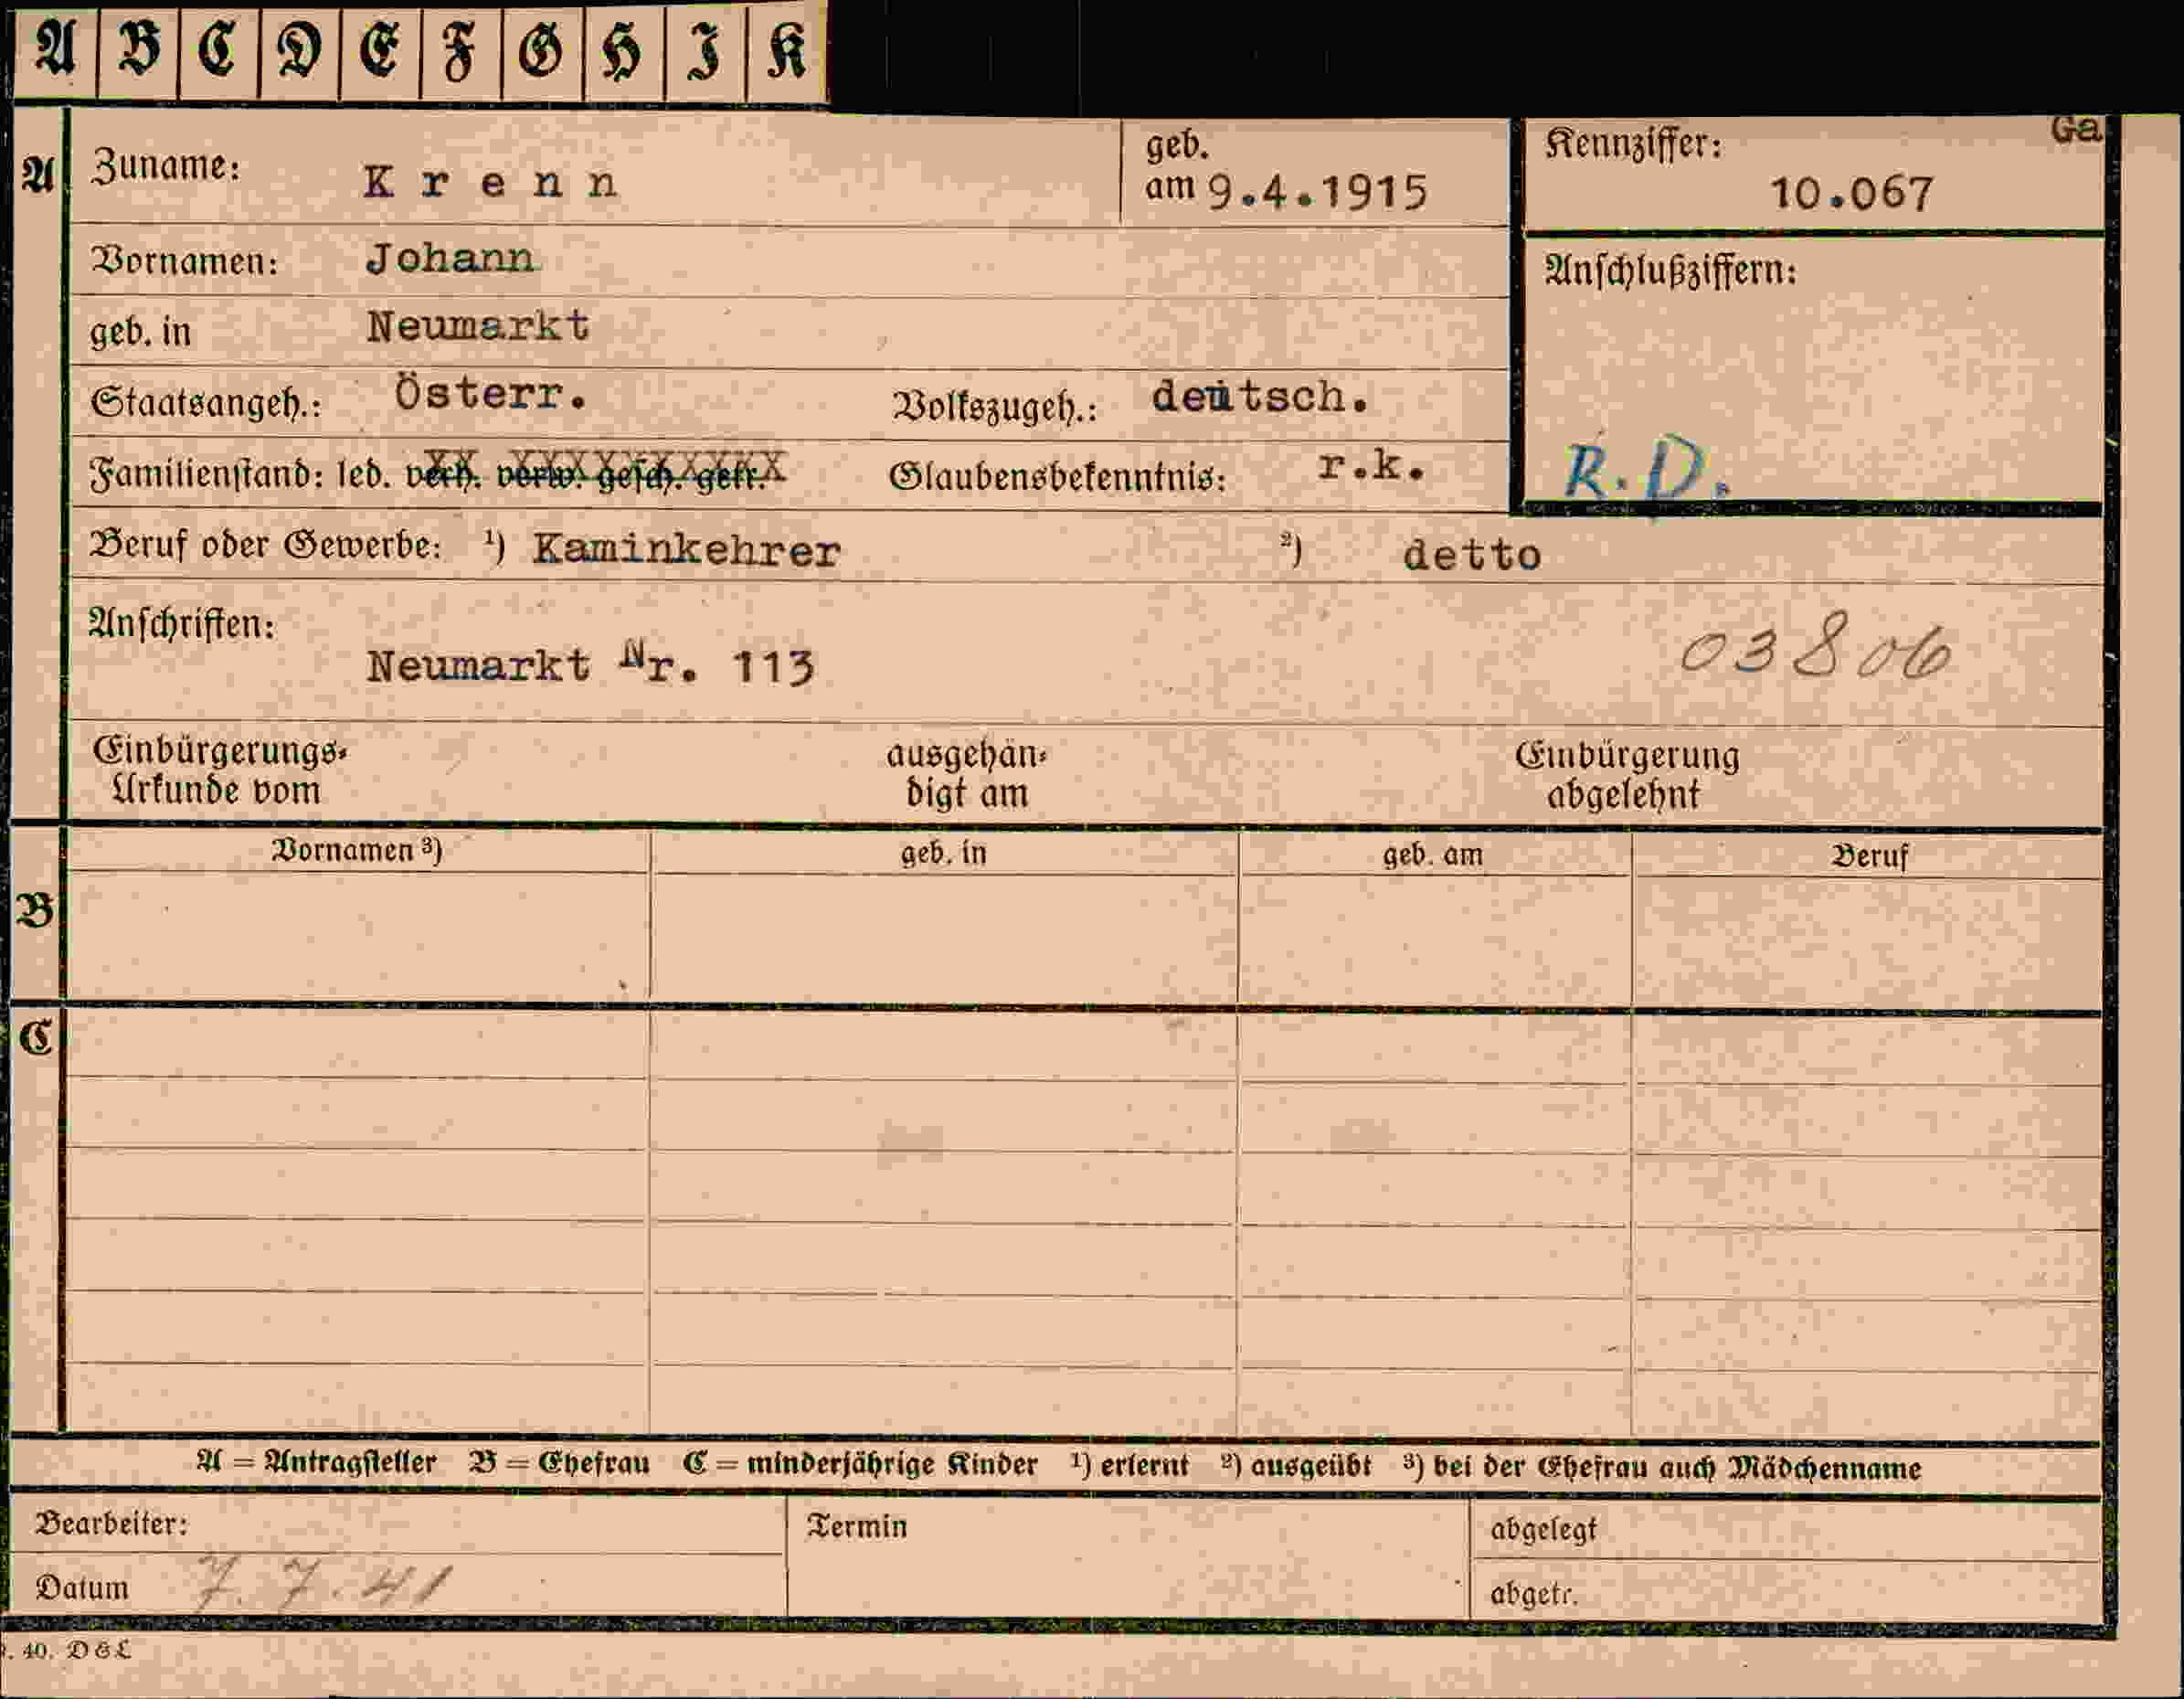 A B C D E F G H I K
A Zuname: Krenn geb. am 9.4.1915 Kennziffer: 10.067 Ga
Vornamen: Johann Anschlußziffern:
geb. in Neumarkt
Staatsangeh.: Österr. Volkszugeh.: deutsch.
Familienstand: led. verh. verw. gesch. getr. Glaubensbekenntnis: r.k. R.D.
Beruf oder Gewerbe: ¹) Kaminkehrer ²) detto
Anschriften: 03806
Neumarkt Nr. 113
Einbürgerungs- ausgehän- Einbürgerung
Urkunde vom digt am abgelehnt
Vornamen ³) geb. in geb. am Beruf
B
C
A = Antragsteller B = Ehefrau C = minderjährige Kinder ¹) erlernt ²) ausgeübt ³) bei der Ehefrau auch Mädchenname
Bearbeiter: Termin abgelegt
Datum 7. 7. 41 abgetr.
. 40. DGL